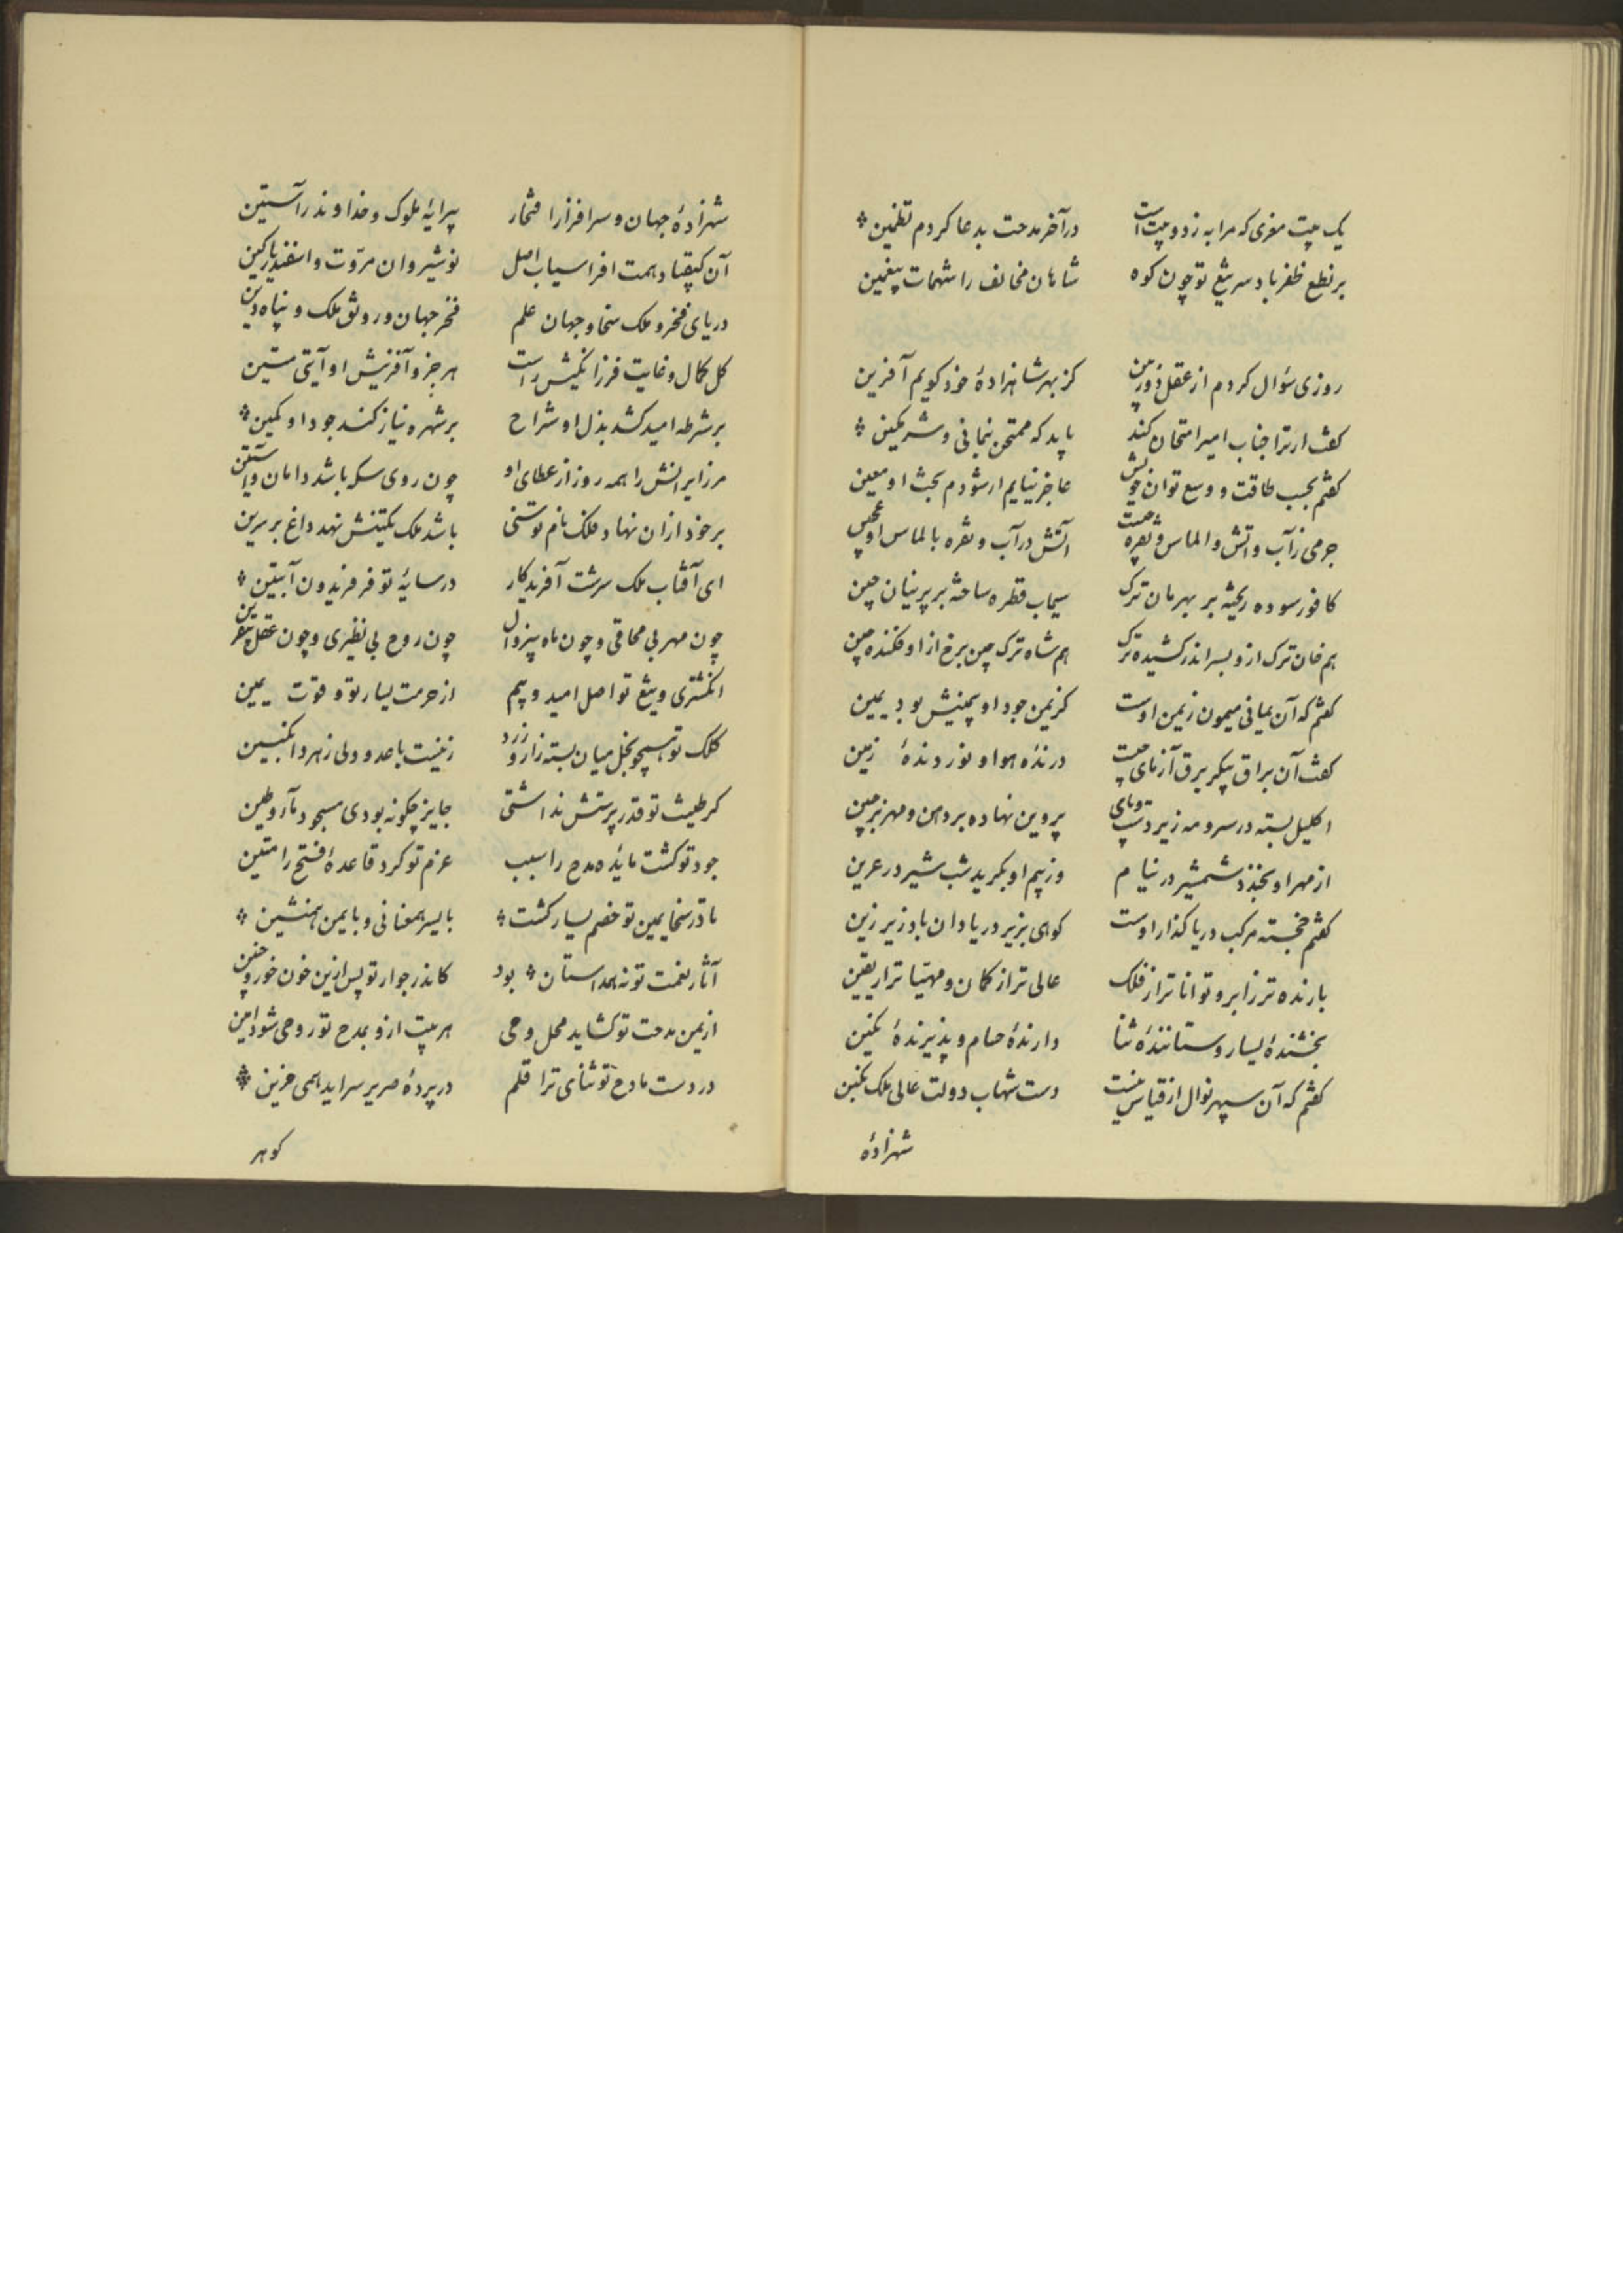 یک بیت معزی که مرا به ز دو بیت است درآخر مدحت بدعا کردم تظمین
بر نطع ظفر باد سر تیغ تو چون کوه شاهان مخالف را شهمات بیغمین
روزی سؤال کردم از عقل دوربین کز بهر شاهزادهٔ خود کویم آفرین
کفت ار ترا جناب امیر امتحان کند باید که ممتحن بنمانی و شرمکین
کفتم بحسب طاقت و وسع توان خویش عاجز نیایم ار شودم بخت او معین
جرمی ز آب و اتش و الماس و نقره چیست اتش در آب و نقره بالماس او عجین
کافور سوده ریخته بر بهرمان ترک سیماب قطره ساخته بر پرنیان چین
هم خان ترک ازو بسر اندر کشیده ترک هم شاه ترک چین برخ از او فکنده چین
کفتم که آن یمانی میمون ز یمن اوست کز یمن جود او بیمینش بود یمین
کفت آن براق پیکر برق آزمای چیست درندهٔ هوا و نوردندهٔ زمین
اکلیل بسته در سر و مه زیر دست و پای پروین نهاده بر دهن و مهر بر جبین
از مهر او بخندد شمشیر در نیام وز بیم او بکرید شب شیر در عرین
کفتم خجسته مرکب دریا کذار اوست کوهی بزیر دریا دان باد زیر زین
بارنده تر ز ابر و توانا تر از فلک عالی تر از کمان و مهیا تر از یقین
بخشندهٔ یسار و ستانندهٔ ثنا دارندهٔ حسام و پذیرندهٔ نکین
کفتم که آن سپهر نوال از قیاس نیست دست شهاب دولت عالی ملک نکین
شهزادهٔ
شهزادهٔ جهان و سرافراز را فتخار پیرایهٔ ملوک و خداوند راستین
آن کیقباد همت افراسیاب اصل نوشیروان مروّت و اسفندیار کین
دریای فخر و ملک سخا و جهان علم فخر جهان و رونق ملک و پناه دین
کل کمال و غایت فرزانکیش راست هر جزو آفرینش او آیتی متین
بر شرطه امید کشد بذل او شراع بر شهره نیاز کند جود او کمین
مر زایرانش را همه روز از عطای او چون روی سکه باشد دامان و آستین
بر خود ازان نهاد فلک نام توسنی باشد ملک تکینش نهد داغ بر سرین
ای آفتاب ملک سرشت آفریدکار در سایهٔ تو فر فریدون آبتین
چون مهر بی محاقی و چون ماه بیزوال چون روح بی نظیری و چون عقل بیقرین
انکشتری و تیغ تو اصل امید و بیم از حرمت یسار تو و قوت یمین
کلک تو همچو نخل میان بسته زار و زرد زینت با عدو ولی زهر و انکبین
کر طینت تو قدر پرستش نداشتی جایز چکونه بودی مسجود مآء و طین
جود تو کشت مایدهٔ مدح را سبب عزم تو کرد قاعدهٔ فتح را متین
تا در سخا یمین تو خصم یسار کشت با یسر همعنانی و با یمن همنشین
آثار نعمت تو نه همداستان بود کاندر جوار تو پس ازین خون خورد جنین
از یمن مدحت تو کشاید محل وحی هر بیت ازو بمدح تو روحی شود امین
در دست مادح تو ثنای ترا قلم در پردهٔ صریر سراید همی حزین
کوهر